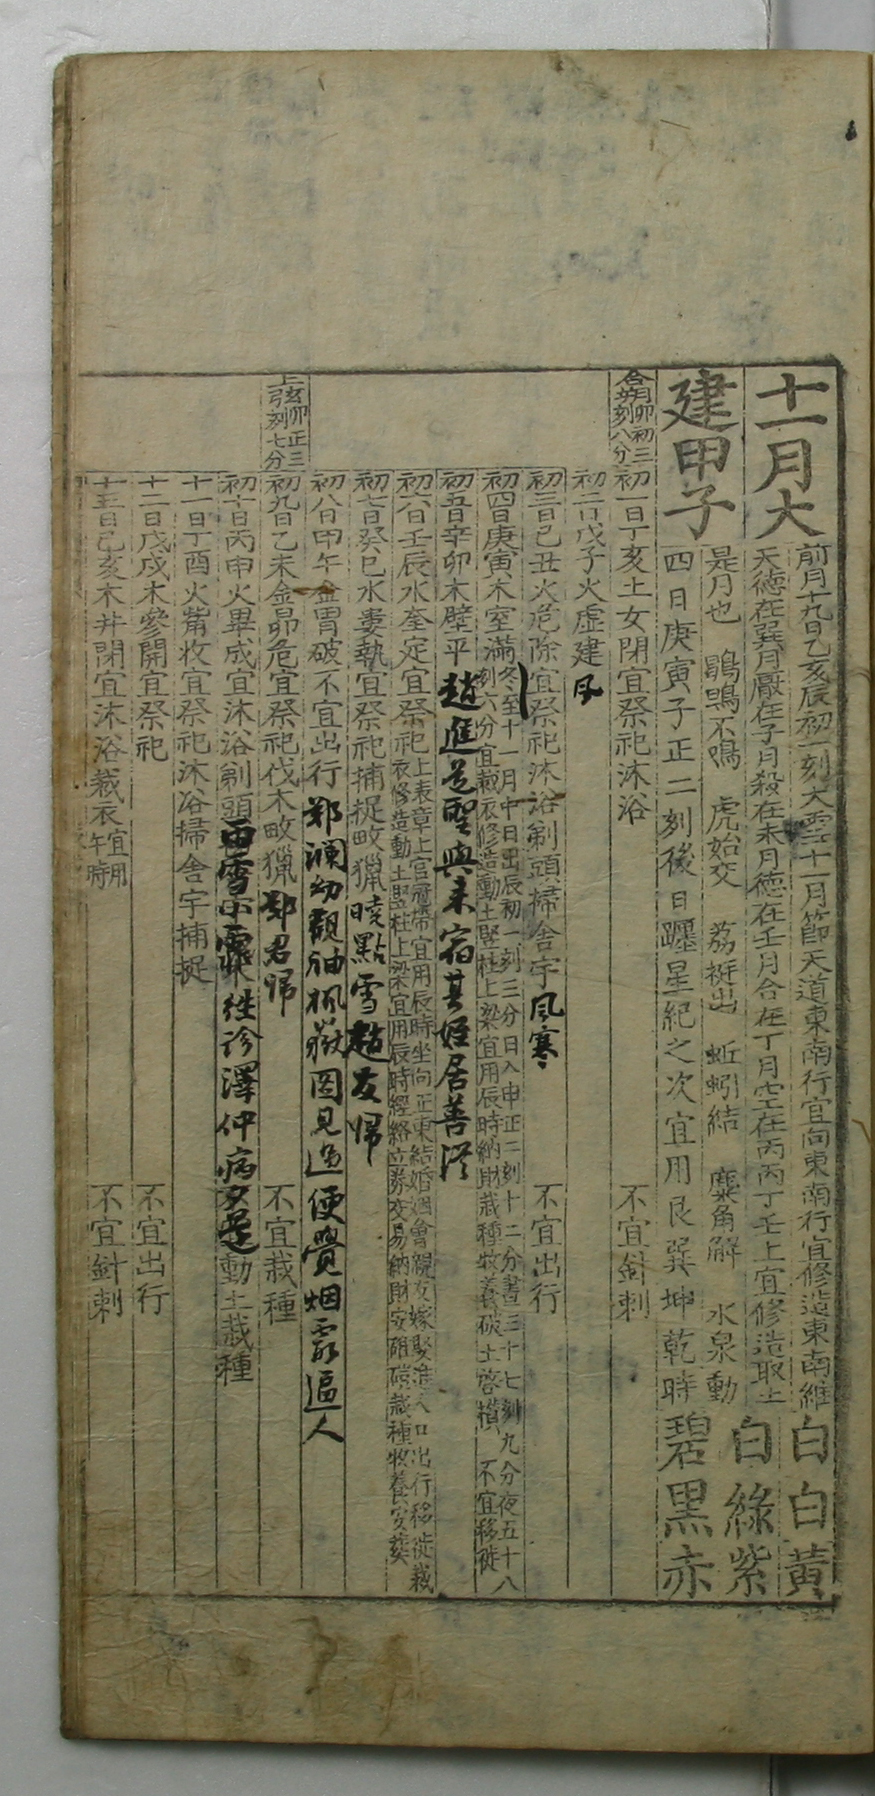 十一月大
建甲子
前月十九日乙亥辰初一刻大雪十一月節天道東南行宜向東南行宜修造東南維
天德在巽月厭在子月殺在未月德在壬月合在丁月空在丙丙丁壬上宜修造取土
是月也 鶡鴠不鳴 虎始交 荔挺出 蚯蚓結 麋角解 水泉動
四日庚寅子正二刻後日躔星紀之次宜用艮巽坤乾時
白白黃
白綠紫
碧黑赤
合朔卯初三刻八分
初一日丁亥土女閉宜祭祀沐浴 不宜針刺
初二日戊子火虛建 風
初三日己丑火危除宜祭祀沐浴剃頭掃舍宇 風寒 不宜出行
初四日庚寅木室滿冬至十一月中日出辰初一刻三分日入申正二刻十二分晝三十七刻九分夜五十八
刻六分宜裁衣修造動土竪柱上梁宜用辰時納財栽種牧養破土啓攢 不宜移徙
初五日辛卯木壁平 趙進士聖與來宿其姪居善從
初六日壬辰水奎定宜祭祀上表章上官冠帶宜用辰時坐向正東結婚姻會親友嫁娶進人口出行移徙裁
衣修造動土竪柱上梁宜用辰時經絡立券交易納財安碓磑栽種牧養安葬
初七日癸巳水婁執宜祭祀捕捉畋獵 曉點雪趙友歸
初八日甲午金胃破不宜出行 鄭瀾幼觀袖楓嶽圖見過便覺烟霞逼人
上弦卯正三刻七分
初九日乙未金昴危宜祭祀伐木畋獵 鄭君歸 不宜栽種
初十日丙申火畢成宜沐浴剃頭 雨雪 往診澤仲病夕還 動土栽種
十一日丁酉火觜收宜祭祀沐浴掃舍宇捕捉
十二日戊戌木參開宜祭祀 不宜出行
十三日己亥木井閉宜沐浴裁衣宜用午時 不宜針刺